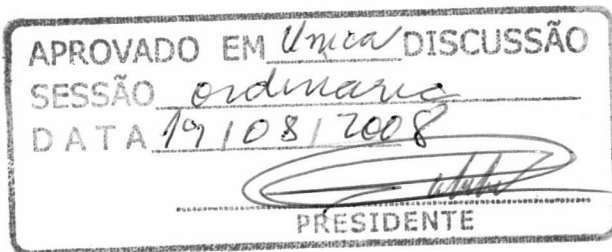 APROVADO EM Unica DISCUSSÃO
SESSÃO ordinaria
DATA 19/08/2008
PRESIDENTE